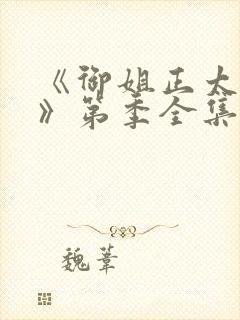 《御姐正太
》第季全集
魏苇